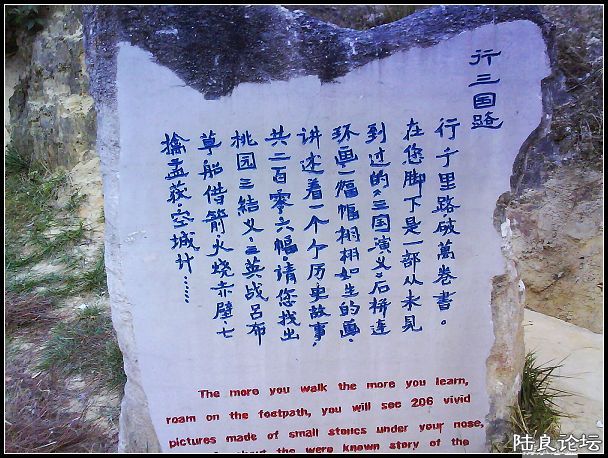 行三国路
行千里路破萬卷書。
在您脚下是一部从未見
到过的,三国演义,石拼连
环画,一幅幅栩栩如生的画,
讲述着一个个历史故事,
共二百零六幅,请您找出
桃园三結义,三英战吕布
草船借箭,火烧赤壁七
擒孟获,空城计……
The more you walk the more you learn,
roam on the footpath, you will see 206 vivid
pictures made of small stones under your nose,
about the were known story of the
陆良论坛